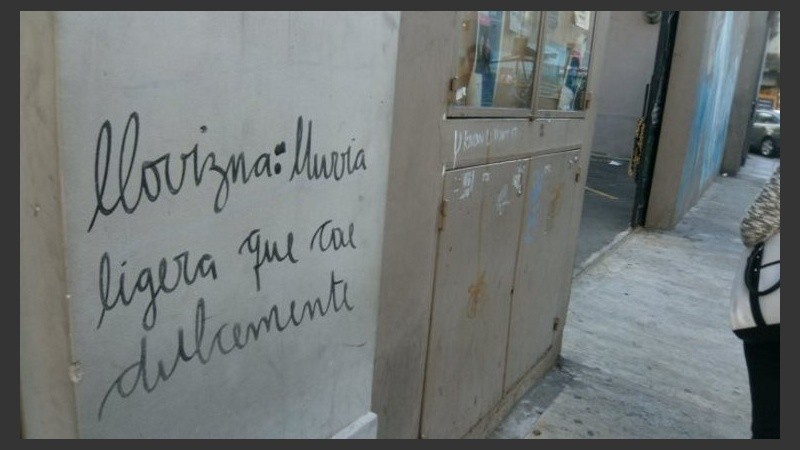 llovizna: lluvia
ligera que cae
dulcemente